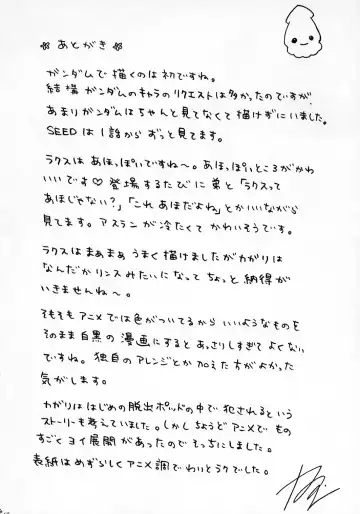 あとがき
ガンダムで描くのは初ですね。
結構ガンダムのキャラのリクエストは多かったのですが、
あまりガンダムはちゃんと見てなくて描けずにいました。
SEEDは1話からずっと見てます。
ラクスはあほっぽいですね〜。あほっぽいところがかわ
いいです♡ 登場するたびに弟と「ラクスって
あほじゃない?」「これあほだよね」とかいいながら
見てます。アスランが冷たくてかわいそうです。
ラクスはまぁまぁうまく描けましたがカガリは
なんだかリンスみたいになってちょっと納得が
いきませんね〜。
そもそもアニメでは色がついてるからいいようなものを
そのまま白黒の漫画にするとあっさりしすぎてよくない
ですね。独自のアレンジとか加えた方がよかった
気がします。
カガリははじめの脱出ポッドの中で犯されるという
ストーリーも考えていました。しかしちょうどアニメでもの
すごくヨイ展開があったのでそっちにしました。
表紙はめずらしくアニメ調でわりとラクでした。